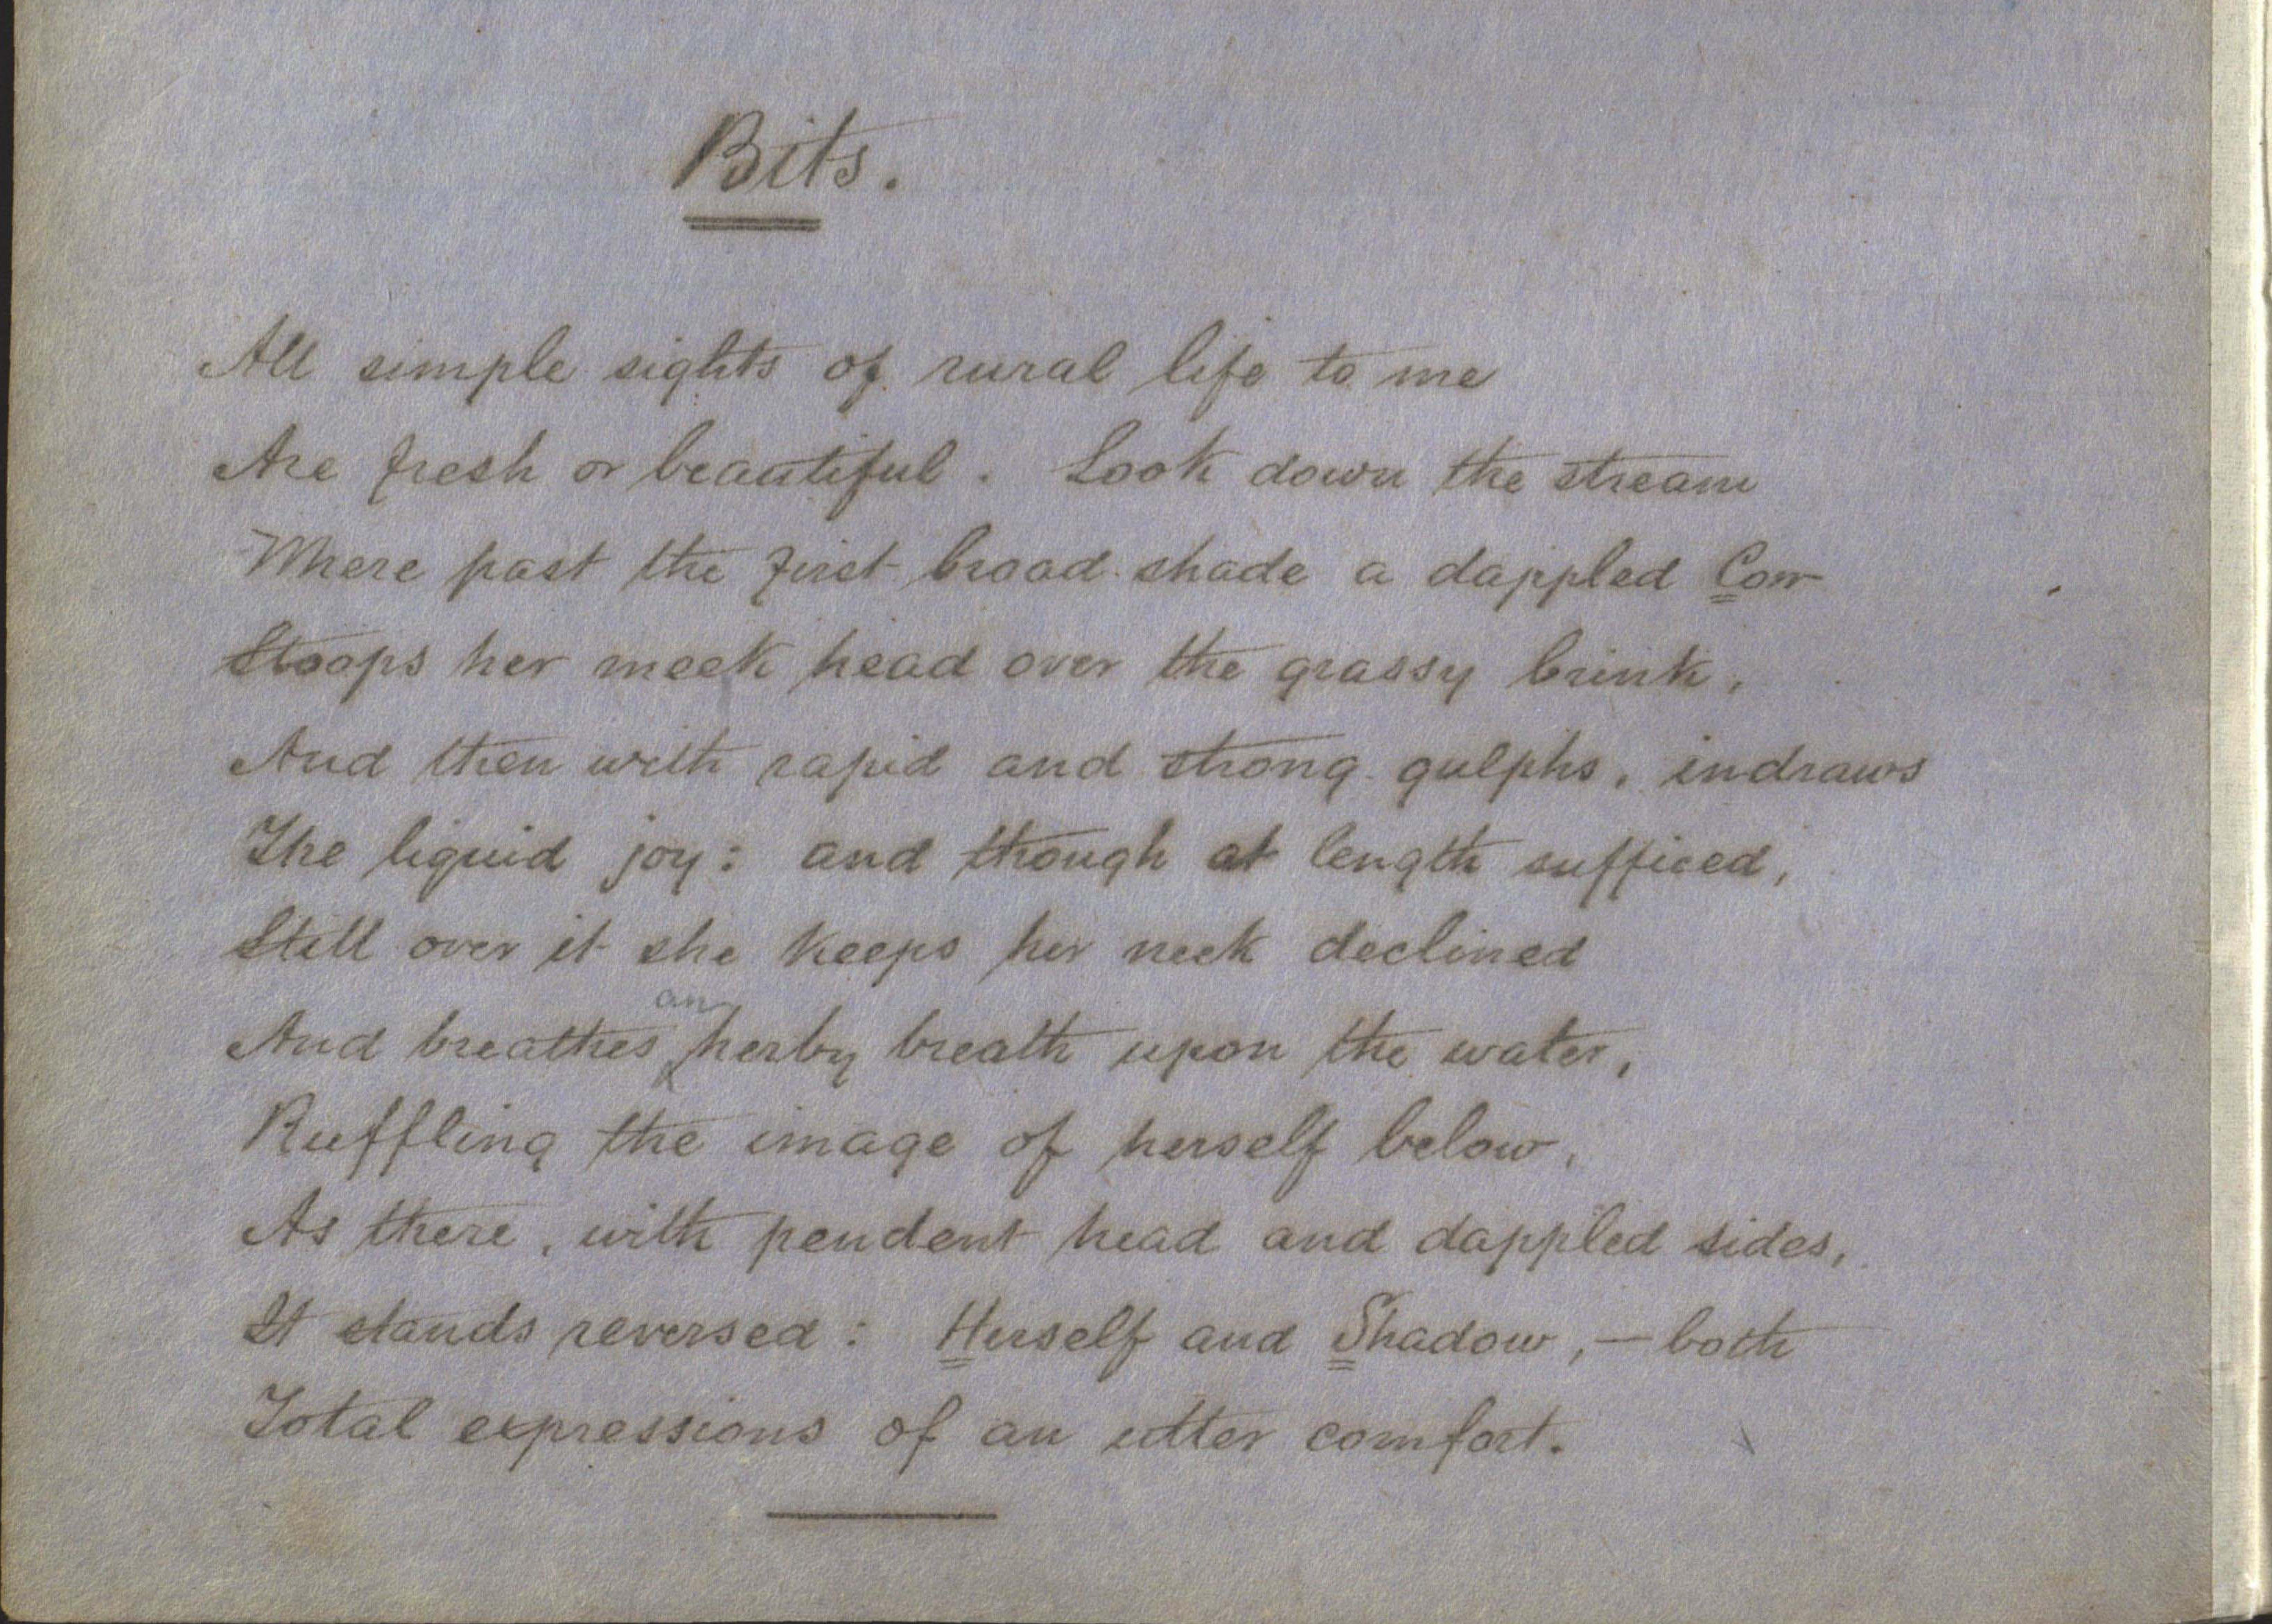 Bits.
All simple sights of rural life to me
Are fresh or beautiful. Look down the stream
Where past the first broad shade a dappled Cow
Stoops her meek head over the grassy brink,
And then with rapid and strong gulphs, indraws
The liquid joy: and though at length sufficed,
Still over it she keeps her neck declined
And breathes an herby breath upon the water,
Ruffling the image of herself below,
As there, with pendent head and dappled sides,
It stands reversed: Herself and Shadow,—both
Total expressions of an utter comfort.